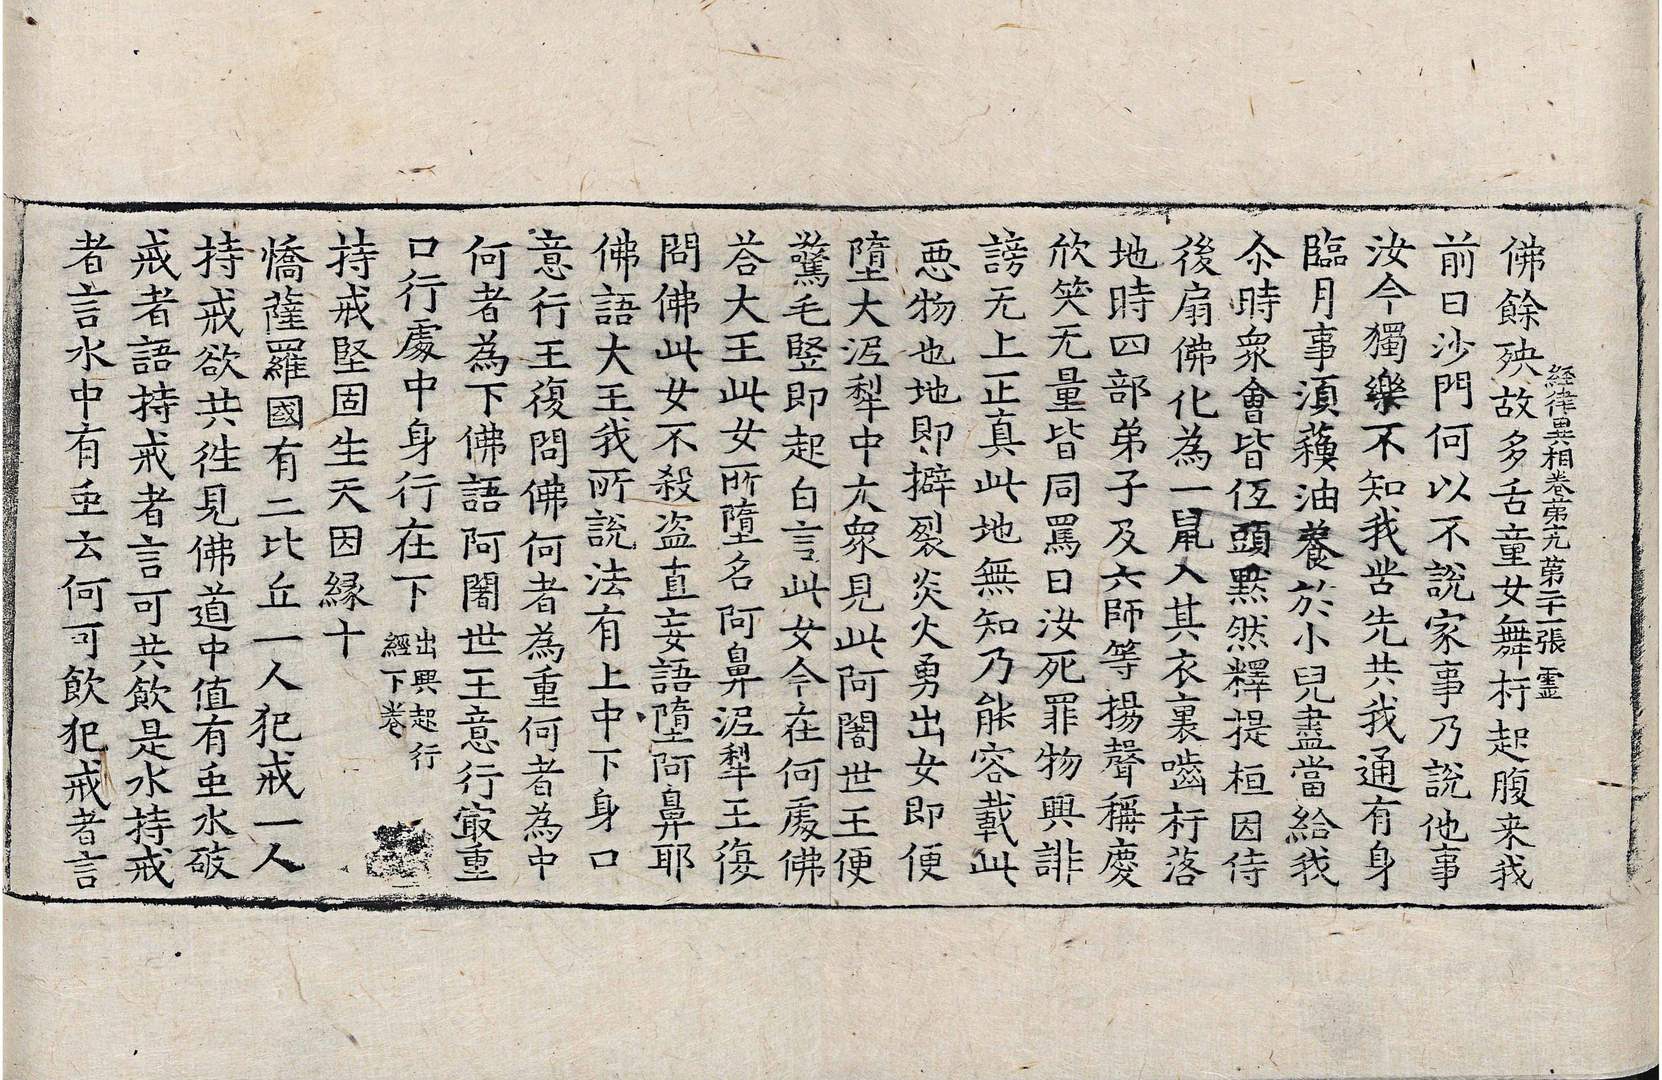 佛餘殃故多舌童女舞杅起腹来我
經律異相卷第九第二十一張 靈
前曰沙門何以不說家事乃說他事
汝今獨樂不知我苦先共我通有身
臨月事湏蘓油養於小兒盡當給我
尒時衆會皆伭頭黙然釋提桓因侍
後扇佛化為一鼠入其衣裏嚙杅落
地時四部弟子及六師等揚聲稱慶
欣笑无量皆同罵曰汝死罪物興誹
謗无上正真此地無知乃能容載此
惡物也地即擗裂炎火勇出女即便
墮大泥犁中大衆見此阿闍世王便
驚毛竪即起白言此女今在何處佛
荅大王此女所墮名阿鼻泥犁王復
問佛此女不殺盗直妄語墮阿鼻耶
佛語大王我所說法有上中下身口
意行王復問佛何者為重何者為中
何者為下佛語阿闍世王意行㝡重
口行處中身行在下 出興起行經下卷
持戒堅固生天因縁十
憍薩羅國有二比丘一人犯戒一人
持戒欲共徃見佛道中值有䖝水破
戒者語持戒者言可共飲是水持戒
者言水中有䖝云何可飲犯戒者言